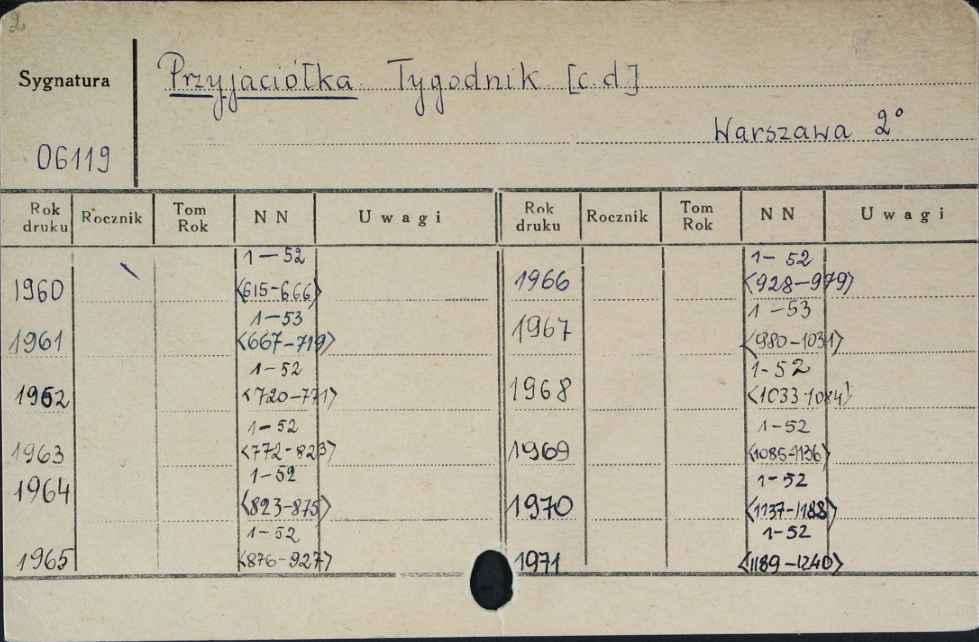 2
Sygnatura
Przyjaciółka Tygodnik [c.d]
Warszawa 2°
06119
Rok druku Rocznik Tom Rok NN Uwagi Rok druku Rocznik Tom Rok NN Uwagi
1960 1-52 <615-666> 1966 1-52 <928-979>
1961 1-53 <667-719> 1967 1-53 <980-1031>
1962 1-52 <720-771> 1968 1-52 <1033-1084>
1963 1-52 <772-823> 1969 1-52 <1085-1136>
1964 1-52 <823-875> 1970 1-52 <1137-1188>
1965 1-52 <876-927> 1971 1-52 <1189-1240>